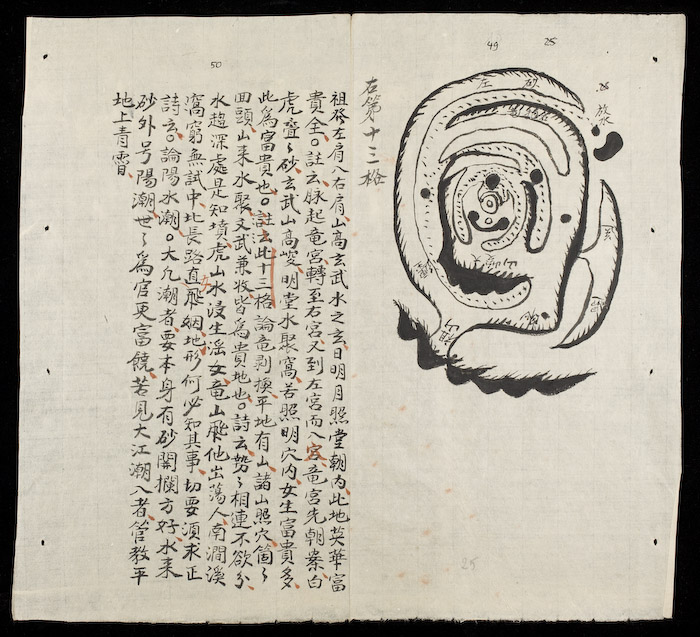 50
49
25
放水
左
砂
祖山
右第十三格
祖發左肩八右肩山高玄武水之玄日明月照堂朝内此地英華富
貴全。註云脉起竜宮轉至右宮又到左宮而八竜宮先朝案白
虎叠〻砂玄武山高峻明堂水聚窩若照明穴内女生富貴多
此為富貴也。註去此十三格論竜剥換平地有山諸山照穴箇〻
囬頭山来水聚文武兼收皆為貴地也。詩云勢〻相連不欲分
水趨深處是知墳虎山水浸生淫女竜山他出蕩人南澗溪
窩窮無試中北長路直姻地形何必知其事切要須求正
詩云論陽水潮。大凢潮者要本身有砂開攔方好水来
砂外号陽潮世〻為官更富饒若見大江潮入者管教平
地上青霄
25